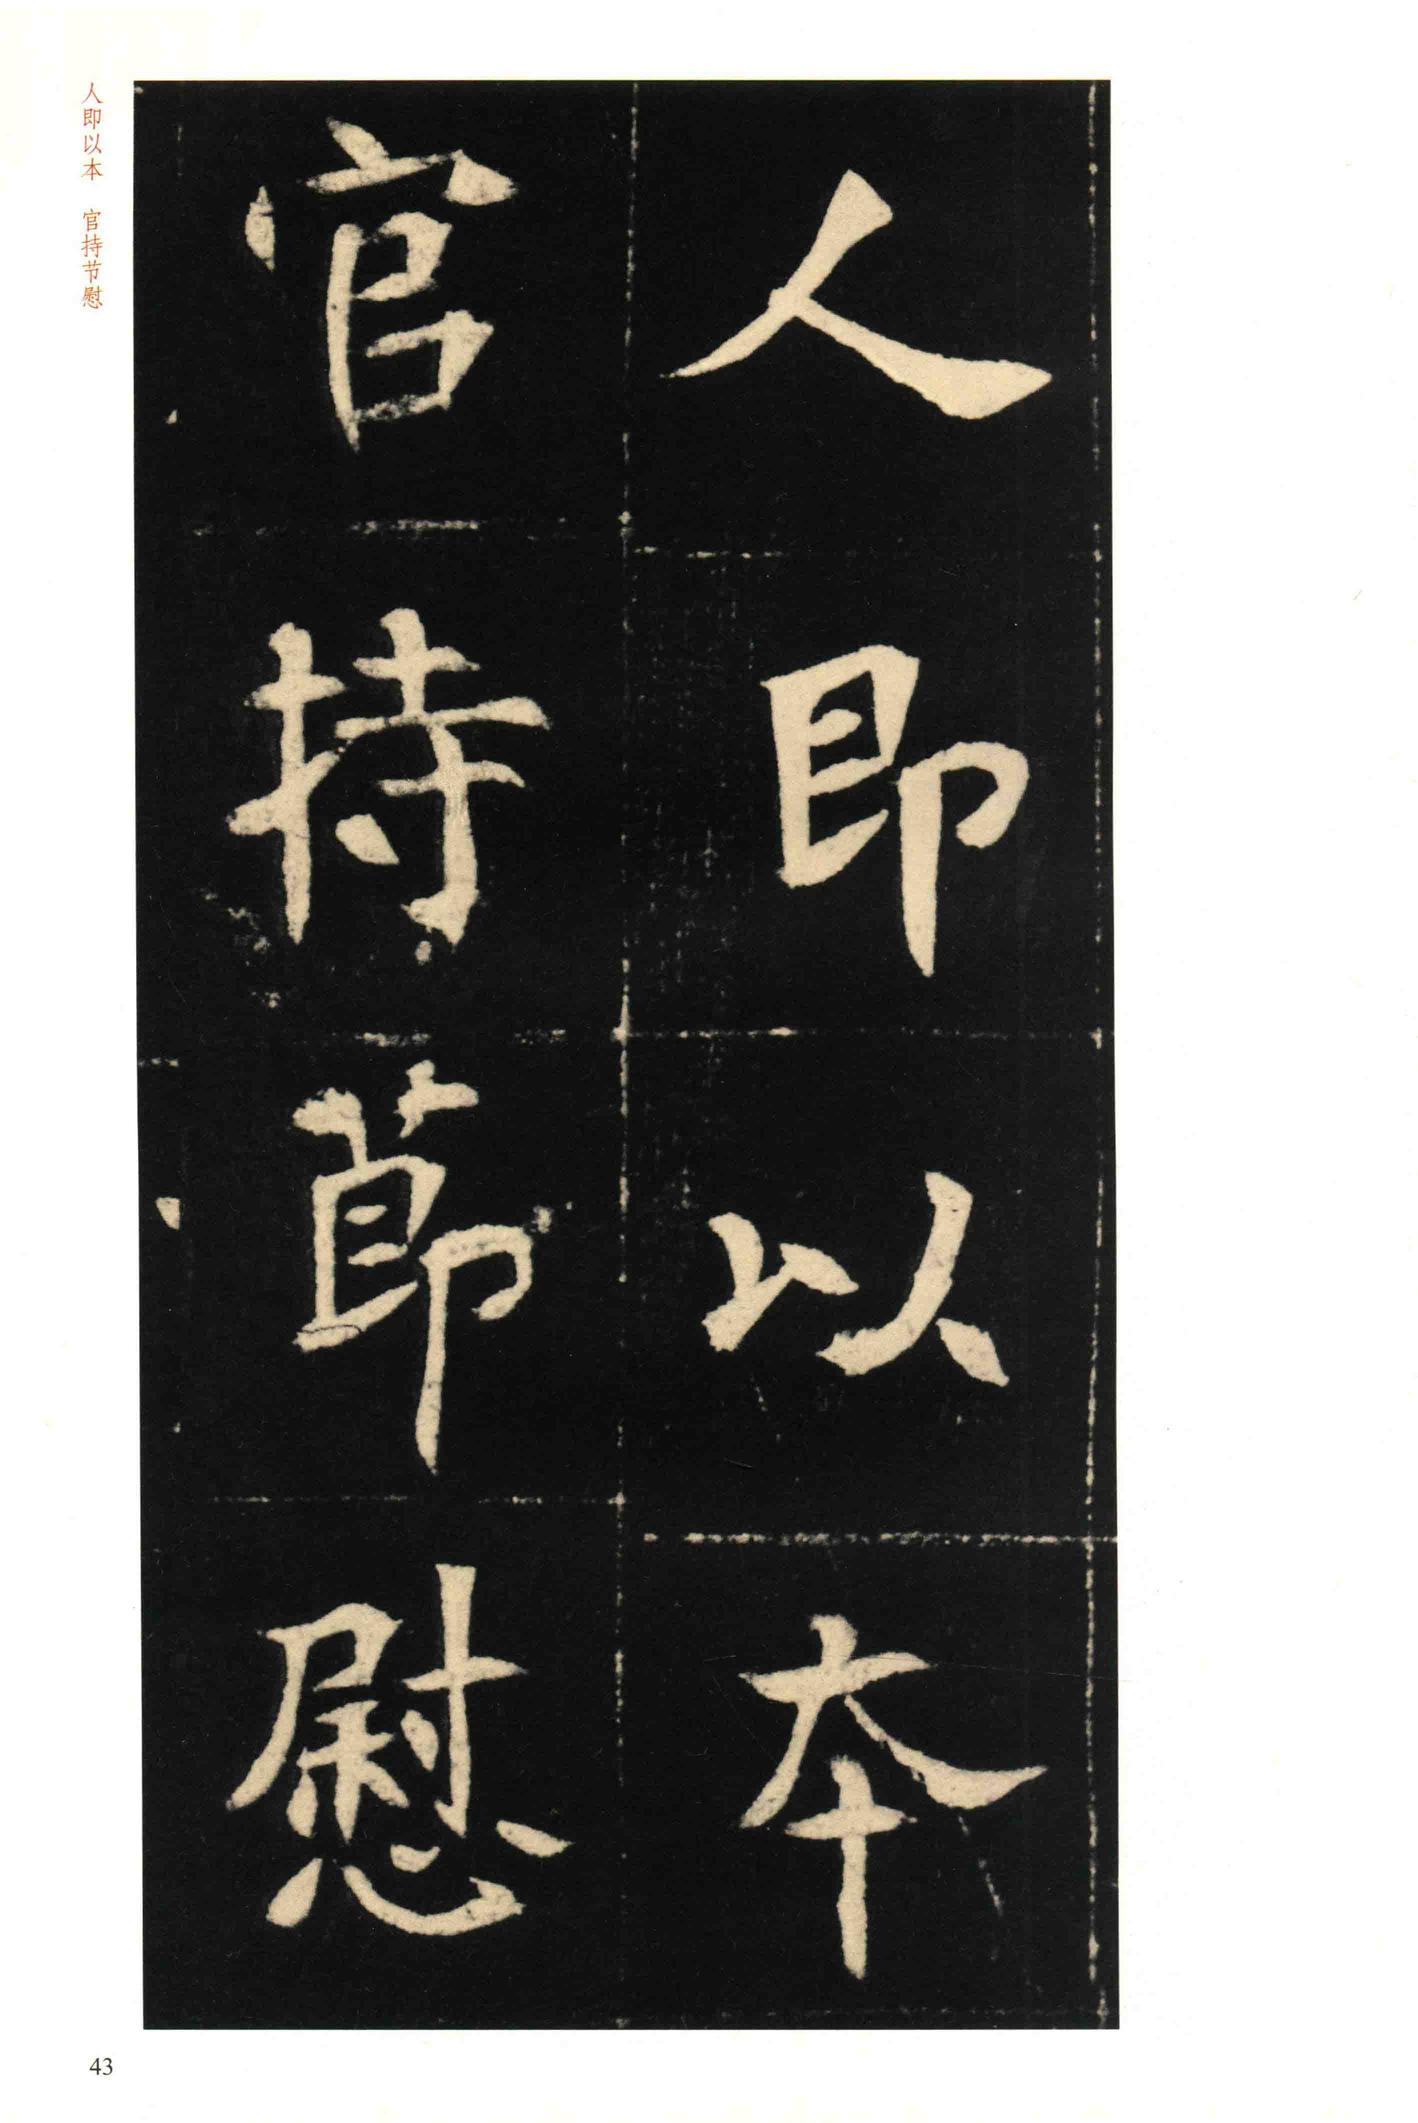 人即以本
官持節慰
人即以本 官持节慰
43